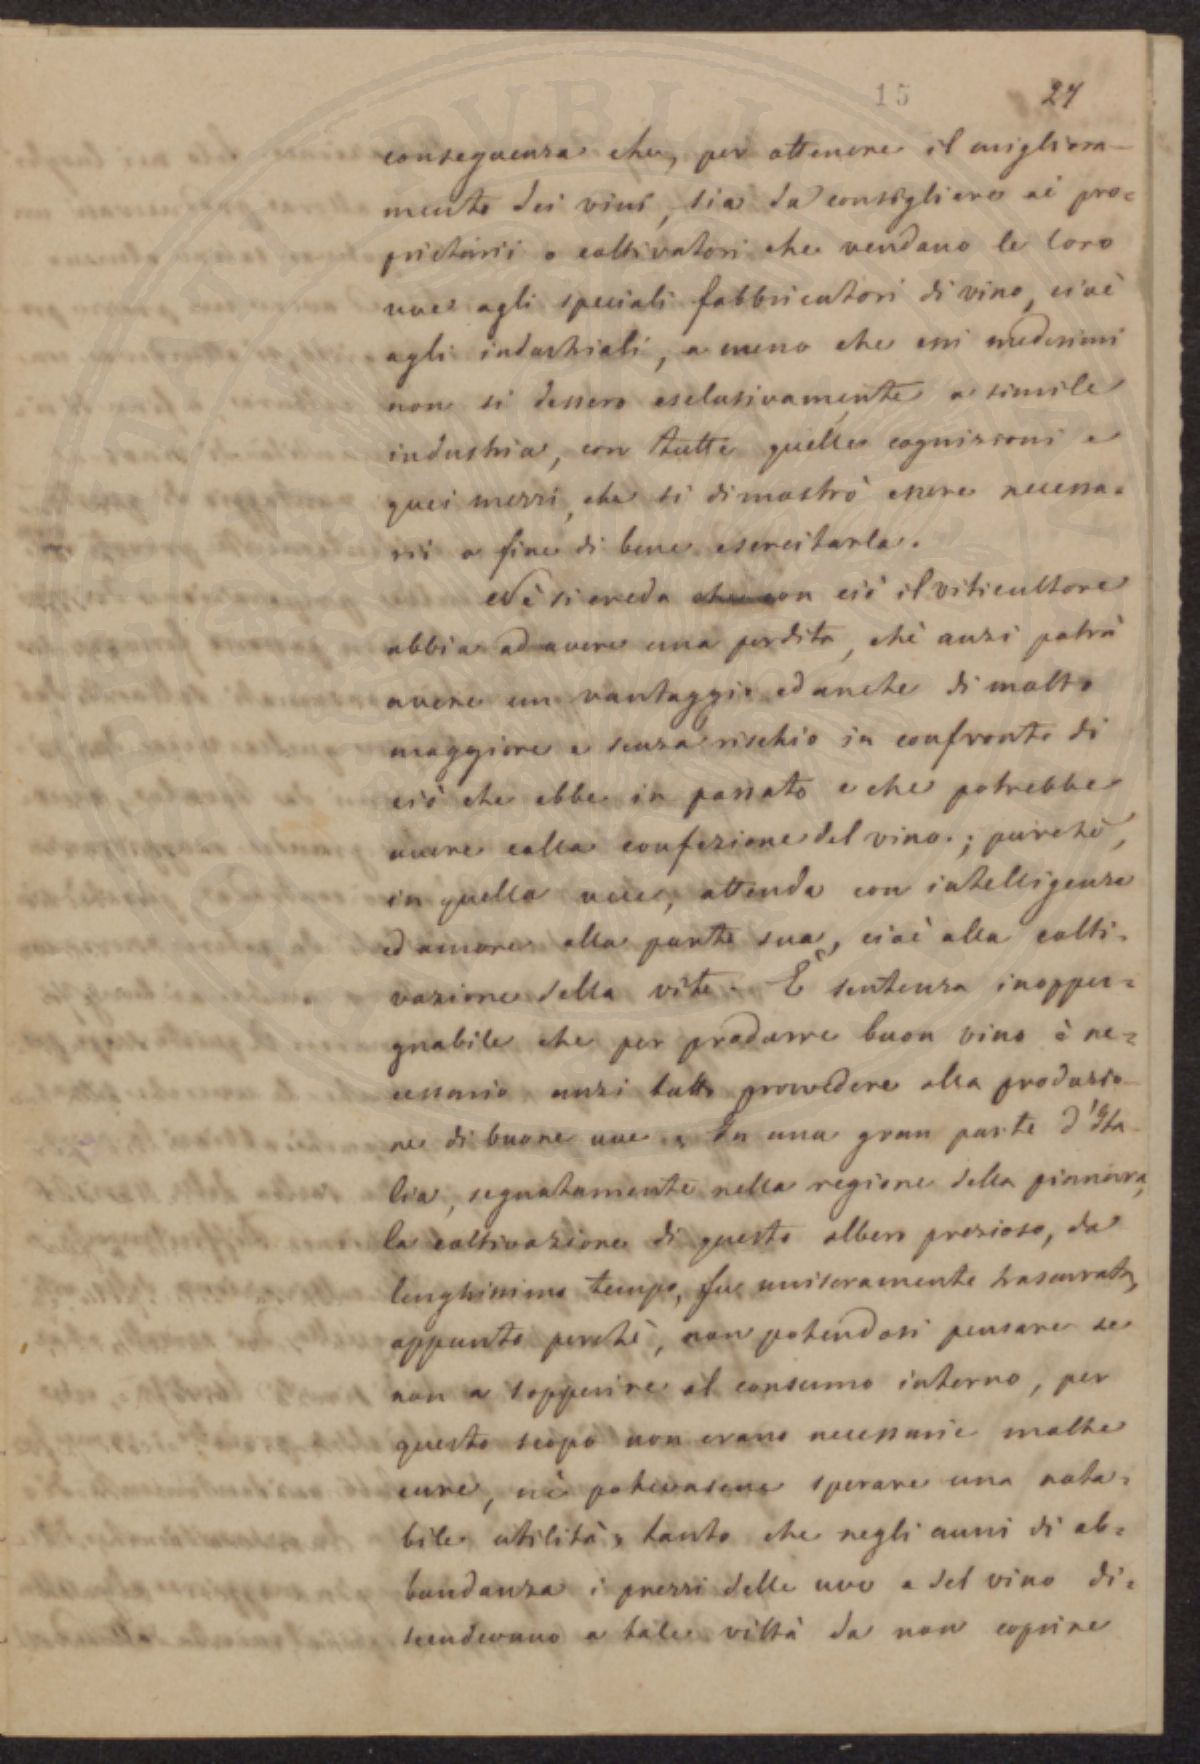 15 27
conseguenza che, per ottenere il migliora-
mento dei vini, sia da consigliare ai pro=
prietarii o coltivatori che vendano le loro
uve agli speciali fabbricatori di vino, cioè
agli industriali, a meno che essi medesimi
non si dessero esclusivamente a simile
industria, con tutte quelle cognizioni e
quei mezzi, che si dimostrò essere necessa=
rii a fine di bene esercitarla.
Nè si creda che con ciò il viticultore
abbia ad avere una perdita, chè anzi potrà
avere un vantaggio ed anche di molto
maggiore e senza rischio in confronto di
ciò che ebbe in passato e che potrebbe
avere colla confezione del vino; purchè,
in quella vece, attenda con intelligenza
ed amore alla parte sua, cioè alla colti=
vazione della vite. È sentenza inoppu=
gnabile che per produrre buon vino è ne=
cessario anzi tutto provvedere alla produzio-
ne di buone uve. In una gran parte d'Ita-
lia, segnatamente nella regione della pianura,
la coltivazione di questo albero prezioso, da
lunghissimo tempo, fu miseramente trascurata,
appunto perchè, non potendosi pensare se
non a sopperire al consumo interno, per
questo scopo non erano necessarie molte
cure, nè potevasene sperare una nota=
bile utilità, tanto che negli anni di ab=
bondanza i prezzi delle uve e del vino di=
scendevano a tale viltà da non coprire